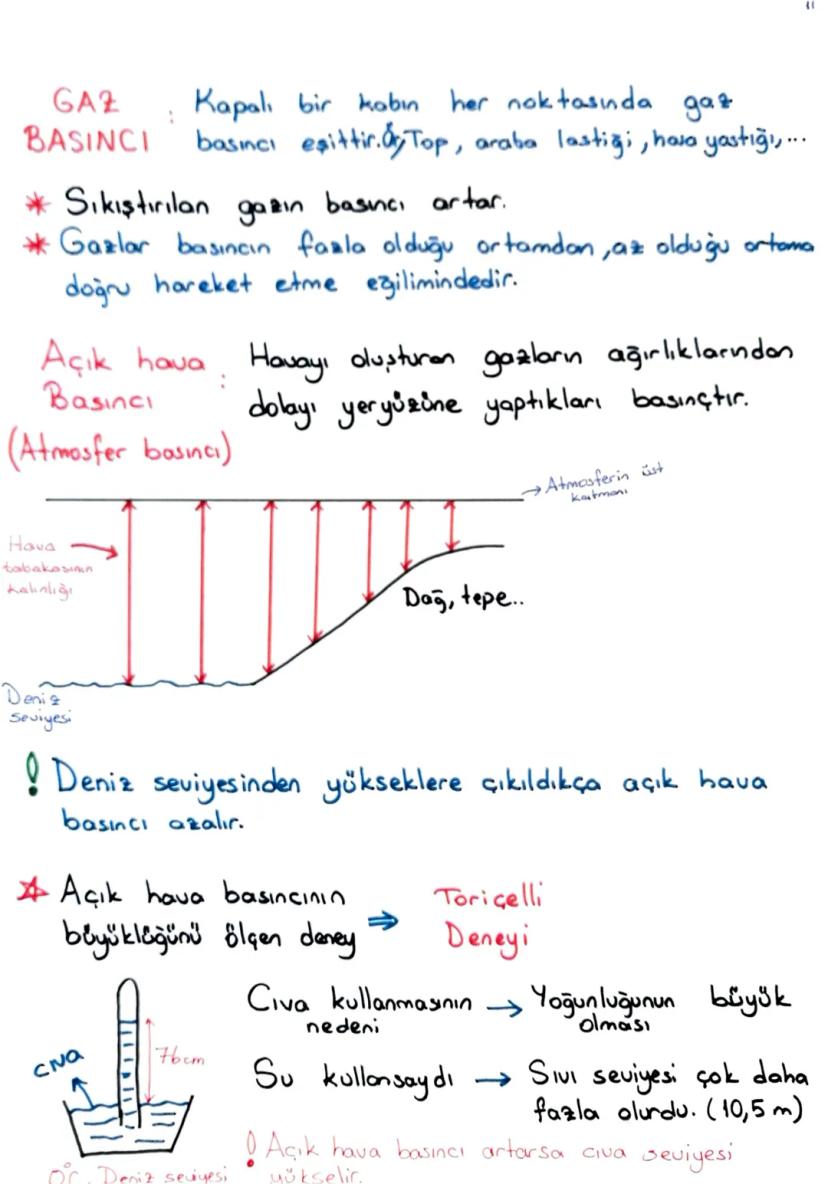 11
GAZ
BASINCI
: Kapalı bir kabın her noktasında gaz
basıncı eşittir. Ör/ Top, araba lastiği, hava yastığı,...
* Sıkıştırılan gazın basıncı artar.
* Gazlar basıncın fazla olduğu ortamdan, az olduğu ortama
doğru hareket etme eğilimindedir.
Açık hava
Basıncı
(Atmosfer basıncı)
: Havayı oluşturan gazların ağırlıklarından
dolayı yeryüzüne yaptıkları basınçtır.
→ Atmosferin üst
katmanı
Hava →
tabakasının
kalınlığı
Dağ, tepe..
Deniz
seviyesi
! Deniz seviyesinden yükseklere çıkıldıkça açık hava
basıncı azalır.
Açık hava basıncının
büyüklüğünü ölçen deney ⇒
Toriçelli
Deneyi
Cıva kullanmasının → Yoğunluğunun büyük
nedeni
olması
76cm
cıva
Su kullansaydı → Sıvı seviyesi çok daha
fazla olurdu. (10,5 m)
! Açık hava basıncı artarsa cıva seviyesi
yükselir.
0°C, Deniz seviyesi